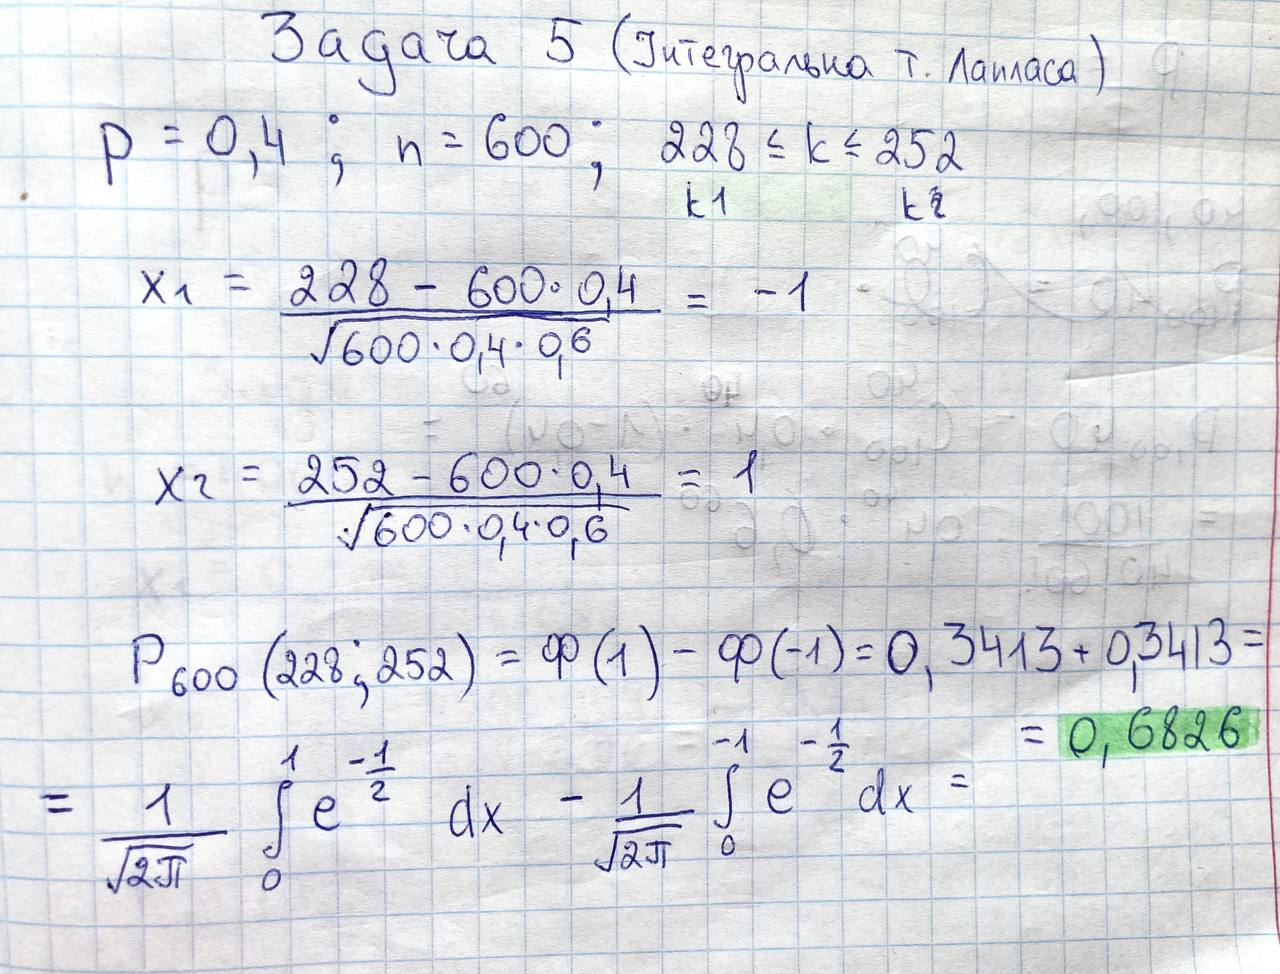 Задача 5 (Інтегральна т. Лапласа)
p = 0,4 ; n = 600 ; 228 ≤ k ≤ 252
k1 k2
x₁ = (228 - 600·0,4) / √(600·0,4·0,6) = -1
x₂ = (252 - 600·0,4) / √(600·0,4·0,6) = 1
P₆₀₀ (228 ; 252) = Ф(1) - Ф(-1) = 0,3413 + 0,3413 =
= 0,6826
= 1/√2π ∫₀¹ e^(-1/2) dx - 1/√2π ∫₀⁻¹ e^(-1/2) dx =